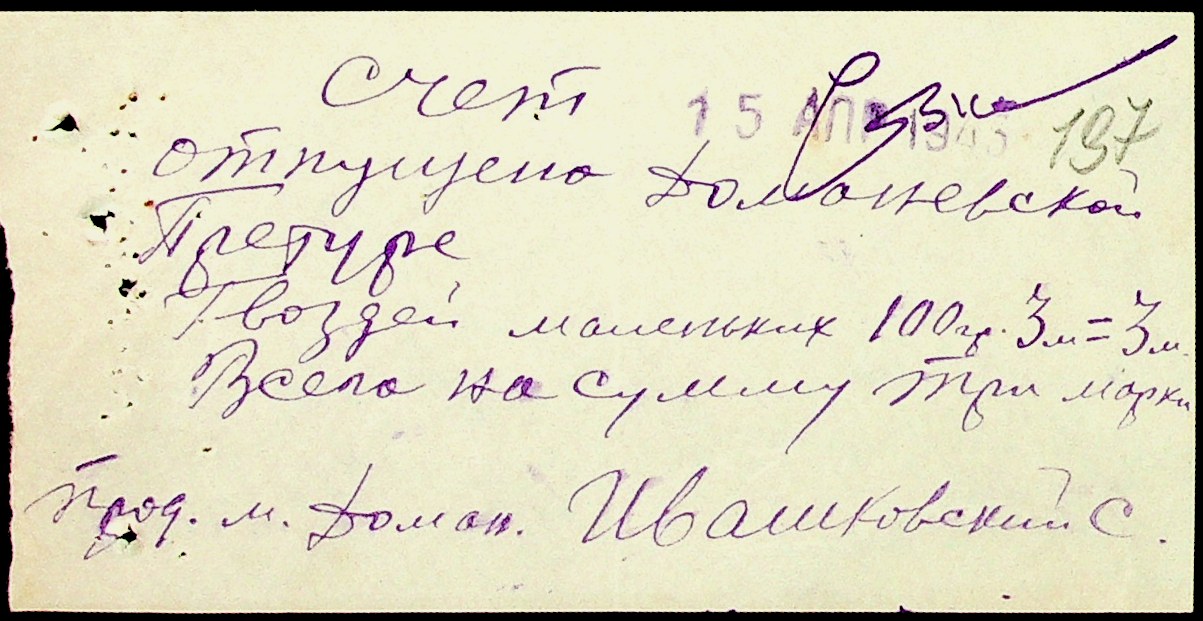 Счет
15 АПР 1943 197
отпущено Доманевской
Претуре
Гвоздей маленьких 100 гр. 3м = 3м.
Всего на сумму три марки
Прод. м. Доман. Ивашковский С.